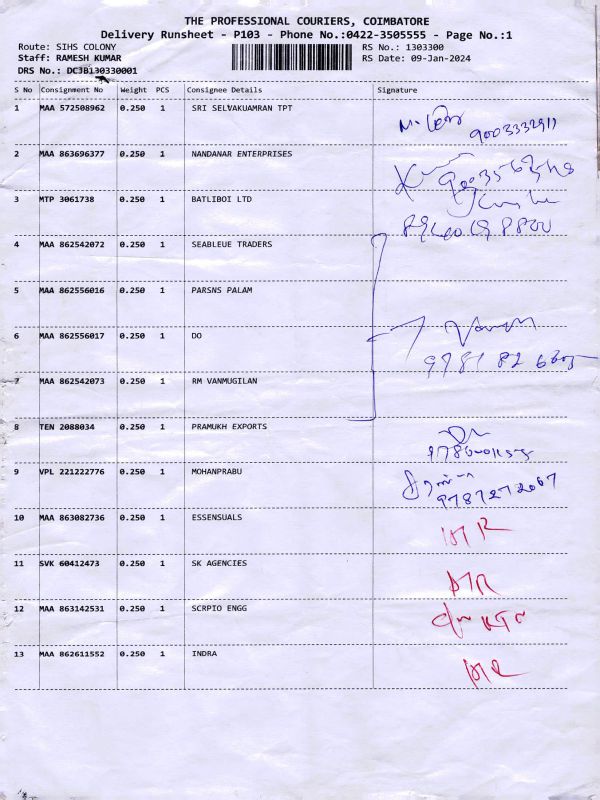 THE PROFESSIONAL COURIERS, COIMBATORE
Delivery Runsheet - P103 - Phone No.:0422-3505555 - Page No.:1
Route: SIHS COLONY
RS No.: 1303300
Staff: RAMESH KUMAR
RS Date: 09-Jan-2024
DRS No.: DCJB130330001
S No Consignment No Weight PCS Consignee Details Signature
1 MAA 572508962 0.250 1 SRI SELVAKUAMRAN TPT
9003332911
2 MAA 863696377 0.250 1 NANDANAR ENTERPRISES
3 MTP 3061738 0.250 1 BATLIBOI LTD
4 MAA 862542072 0.250 1 SEABLEUE TRADERS
5 MAA 862556016 0.250 1 PARSNS PALAM
6 MAA 862556017 0.250 1 DO
7 MAA 862542073 0.250 1 RM VANMUGILAN
8 TEN 2088034 0.250 1 PRAMUKH EXPORTS
9 VPL 221222776 0.250 1 MOHANPRABU
9787272067
10 MAA 863082736 0.250 1 ESSENSUALS
11 SVK 60412473 0.250 1 SK AGENCIES
12 MAA 863142531 0.250 1 SCRPIO ENGG
13 MAA 862611552 0.250 1 INDRA